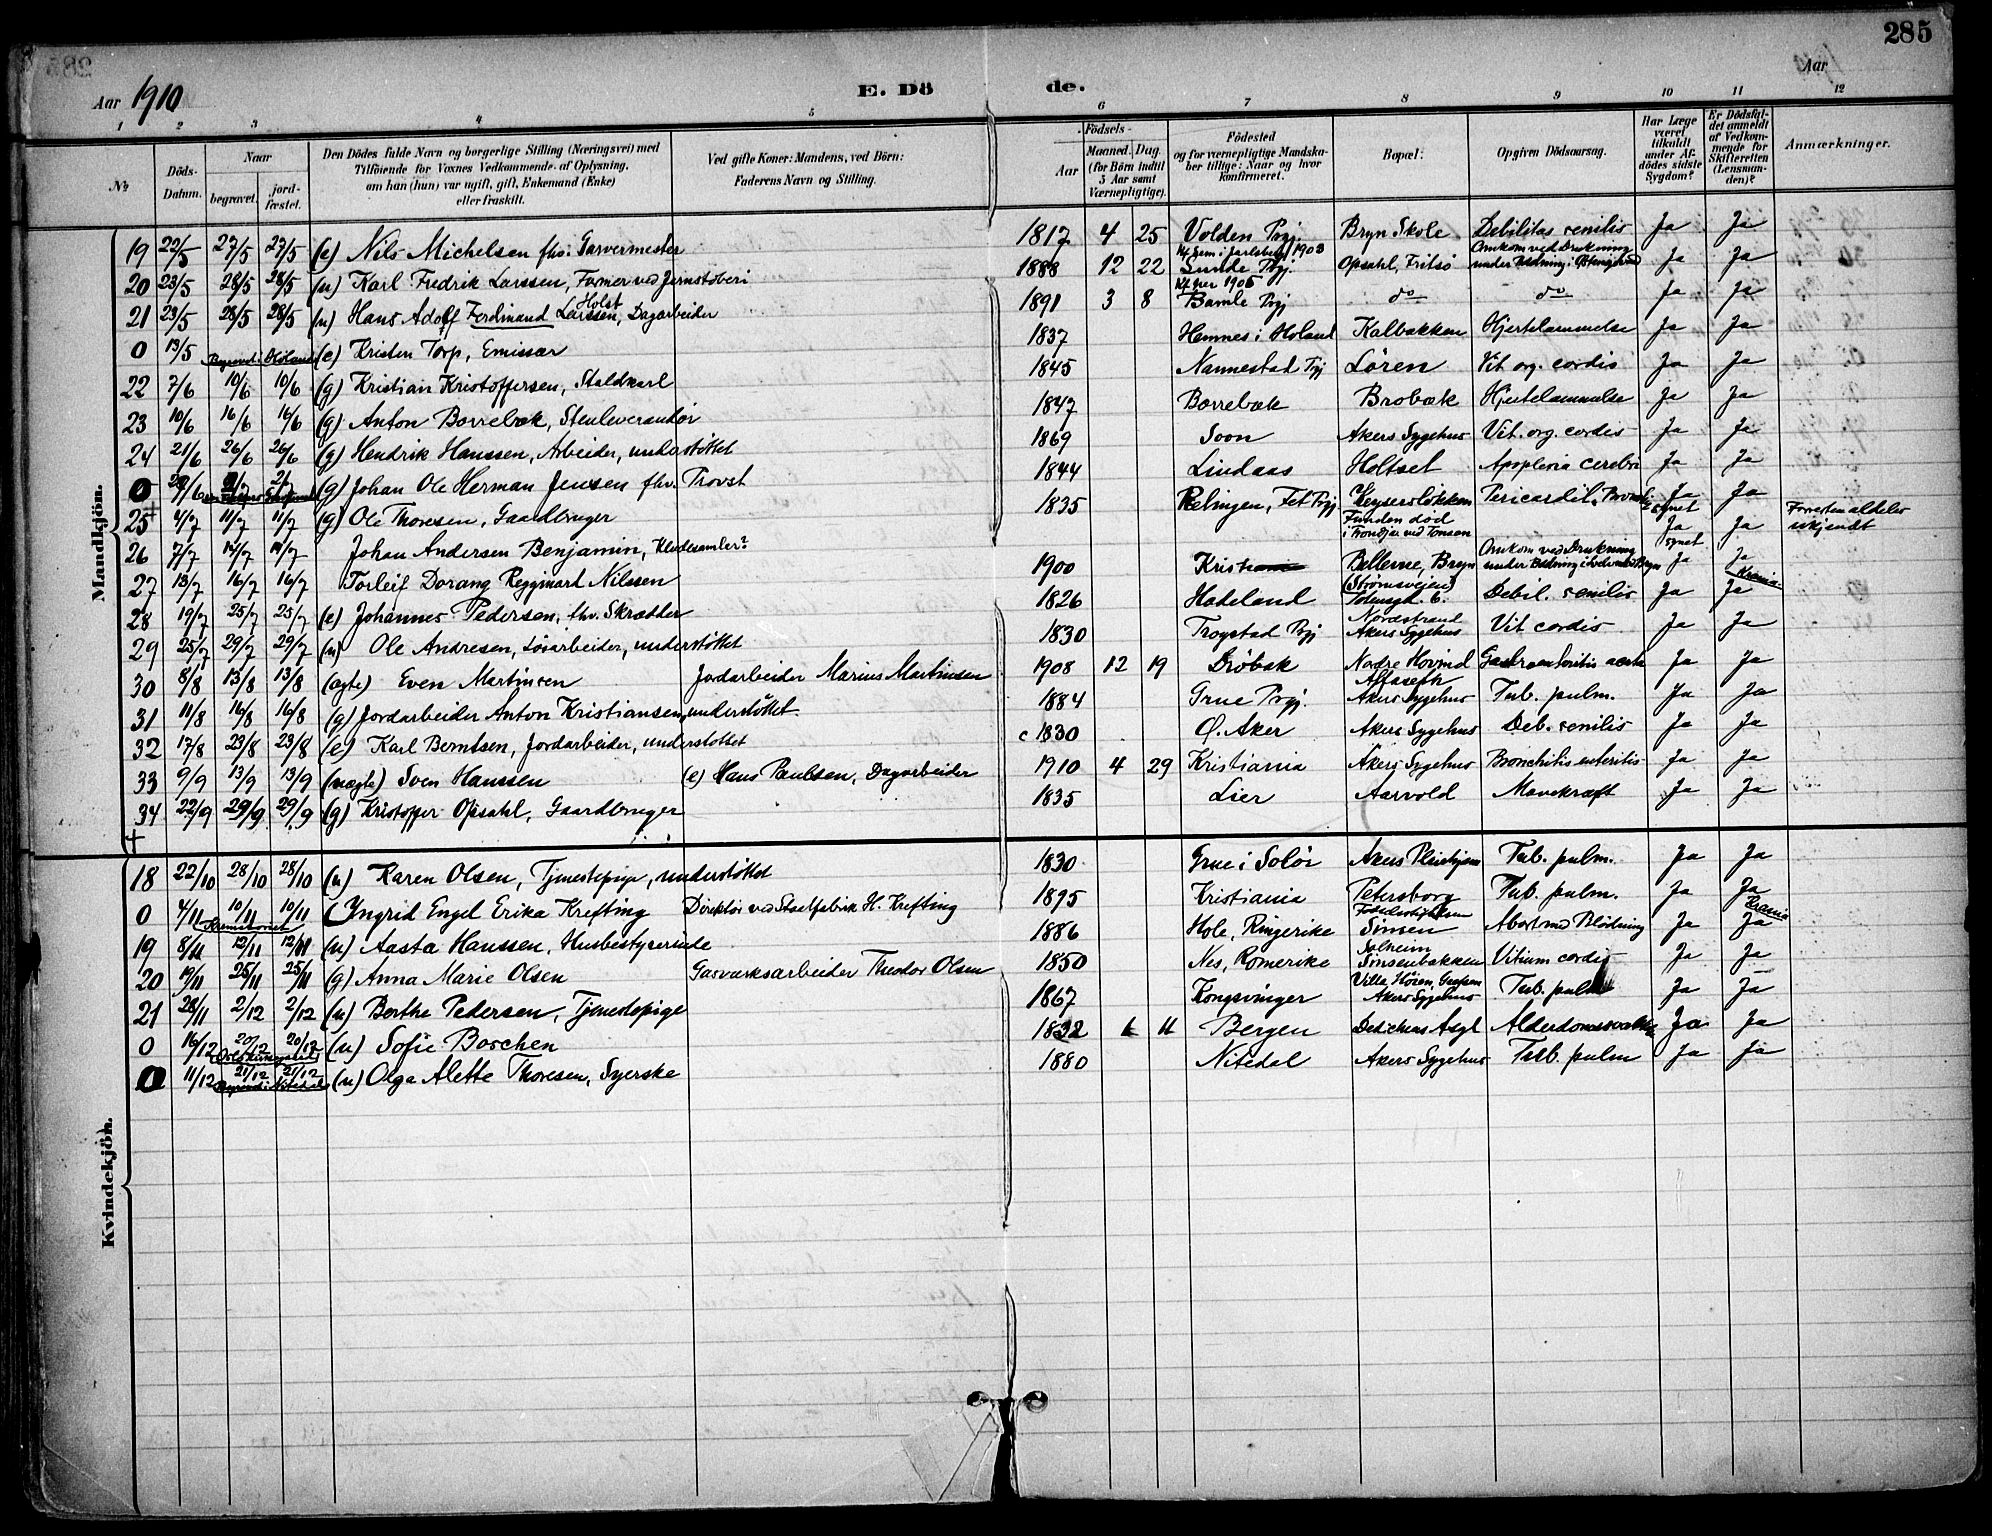 285
Aar 1910
E. Döde.
Aar
1 2 3 4 5 6 7 8 9 10 11 12
№
Döds-Datum.
Naar
begravet.
jordfæstet.
Den Dödes fulde Navn og borgerlige Stilling (Næringsvei) med Tilföiende for Voxnes Vedkommende af Oplysning, om han (hun) var ugift, gift, Enkemand (Enke) eller fraskilt.
Ved gifte Koner: Mandens, ved Börn: Faderens Navn og Stilling.
Födsels-
Aar
Maaned. Dag
(for Börn indtil 5 Aar samt Værnepligtige).
Födested og for værnepligtige Mandskaber tillige: Naar og hvor konfirmeret.
Bopæl:
Opgiven Dödsaarsag.
Har Læge været tilkaldt under Afdödes sidste Sygdom?
Er Dödsfaldet anmeldt af Vedkommende for Skifteretten (Lensmanden)?
Anmærkninger.
Mandkjön.
19 22/5 27/5 27/5 (e) Nils Michelsen fhv. Garvermester 1817 4 25 Volden Pgj. Bryn Skole Debilitas senilis Ja Ja
20 23/5 28/5 28/5 (u) Karl Fredrik Larssen, Former ved Jernstøberi 1888 12 22 Kf. Sem i Jarlsberg 1903 Lunde Pgj. Opsahl, Fritsø Omkom ved Drukning under Badning i Ja Ja
21 23/5 28/5 28/5 (u) Hans Adolf Ferdinand Larssen Holst, Dagarbeider 1891 3 8 Kf. her 1905 Bamle Pgj do do Ja Ja
0 19/5 Begravet i Høland (e) Kristen Torp, Emissær 1837 Hemnes i Høland Kalbakken Hjertelammelse Ja Ja
22 7/6 10/6 10/6 (g) Kristian Kristoffersen, Staldkarl 1845 Nannestad Pgj Løren Vit. org. cordis Ja Ja
23 10/6 16/6 16/6 (g) Anton Borrebæk, Stenleverandør 1847 Borrebæk Brobæk Hjertelammelse Ja Ja
24 21/6 26/6 26/6 (g) Hendrik Hanssen, Arbeider, understøttet 1869 Soon Akers Sygehus Vit. org. cordis Ja Ja
0 28/6 2/7 2/7 (g) Johan Ole Herman Jenssen fhv. Provst 1844 Lindaas Holtset Apoplexia cerebri Ja Ja
25 4/7 11/7 11/7 (g) Ole Thoresen, Gaardbruger 1835 Relingen, Fet Pgj Keyserløkken Pericardit. Ja Ja
26 7/7 14/7 14/7 Johan Andersen Benjamin, Kludesamler? Funden død i Tromdja ved Tonsen Ja Ja Forresten aldeles ukjendt
27 13/7 16/7 16/7 Torleif Dorang Reggmart Nilssen 1900 Kristiania Bellevue, Bryn (Strømsveien) Omkom ved Drukning under Badning i Ja Ja
28 19/7 25/7 25/7 (e) Johannes Pedersen, fhv. Skrædder 1826 Hadeland Totensgd. 6. Debil. senilis Ja Krania Ja
29 25/7 29/7 29/7 (u) Ole Andresen, Løsarbeider, understøttet 1830 Trøgstad Pgj Nordstrand Akers Sygehus Vit cordis Ja Ja
30 8/8 13/8 13/8 (ægte) Even Martinsen Jordarbeider Marius Martinsen 1908 12 19 Drøbak Nedre Hovind Gastroenteritis acuta Ja Ja
31 11/8 16/8 16/8 (g) Jordarbeider Anton Kristiansen, understøttet 1884 Grue Pgj. Alfaseth Akers Sygehus Tub. pulm. Ja Ja
32 17/8 23/8 23/8 (e) Karl Berntsen, Jordarbeider, understøttet c 1830 Ø. Aker Akers Sygehus Deb. senilis Ja Ja
33 9/9 13/9 13/9 (uægte) Sven Hanssen (e) Hans Paulsen, Dagarbeider 1910 4 29 Kristiania Akers Sygehus Bronchitis enteritis Ja Ja
34 22/9 29/9 29/9 (g) Kristoffer Opsahl, Gaardbruger 1835 Lier Aarvold Mavekræft Ja Ja
Kvindekjön.
18 22/10 28/10 28/10 (u) Karen Olsen, Tjenestepige, understøttet 1830 Grue i Solør Akers Pleiehjem Tub. pulm. Ja Ja
0 4/11 10/11 10/11 Kremationet Ingrid Engel Erika Krefting Direktør ved Staalfabrik H. Krefting 1895 Kristiania Petersborg Tub. pulm. Ja Ja
19 8/11 12/11 12/11 (u) Aasta Hanssen, Husbestyrerinde 1886 Hole, Ringerike Fødselsstiftelsen Sinsen Abort med Blødning Ja Krania Ja
20 19/11 25/11 25/11 (g) Anna Marie Olsen Gasværksarbeider Theodor Olsen 1850 Nes, Romerike Solheim Sinsenbakken Vitium cordis Ja Ja
21 28/11 2/12 2/12 (u) Berthe Pedersen, Tjenestepige 1867 Kongsvinger Villa Høien, Grefsen Akers Sygehus Tub. pulm Ja Ja
0 16/12 20/12 20/12 (u) Sofie Boschen 1832 11 Bergen Dedichens Asyl Alderdomssvakke Ja Ja
0 11/12 21/12 21/12 Begravet i Nitedal (u) Olga Alette Thoresen, Syerske 1880 Nitedal Akers Sygehus Tub. pulm Ja Ja